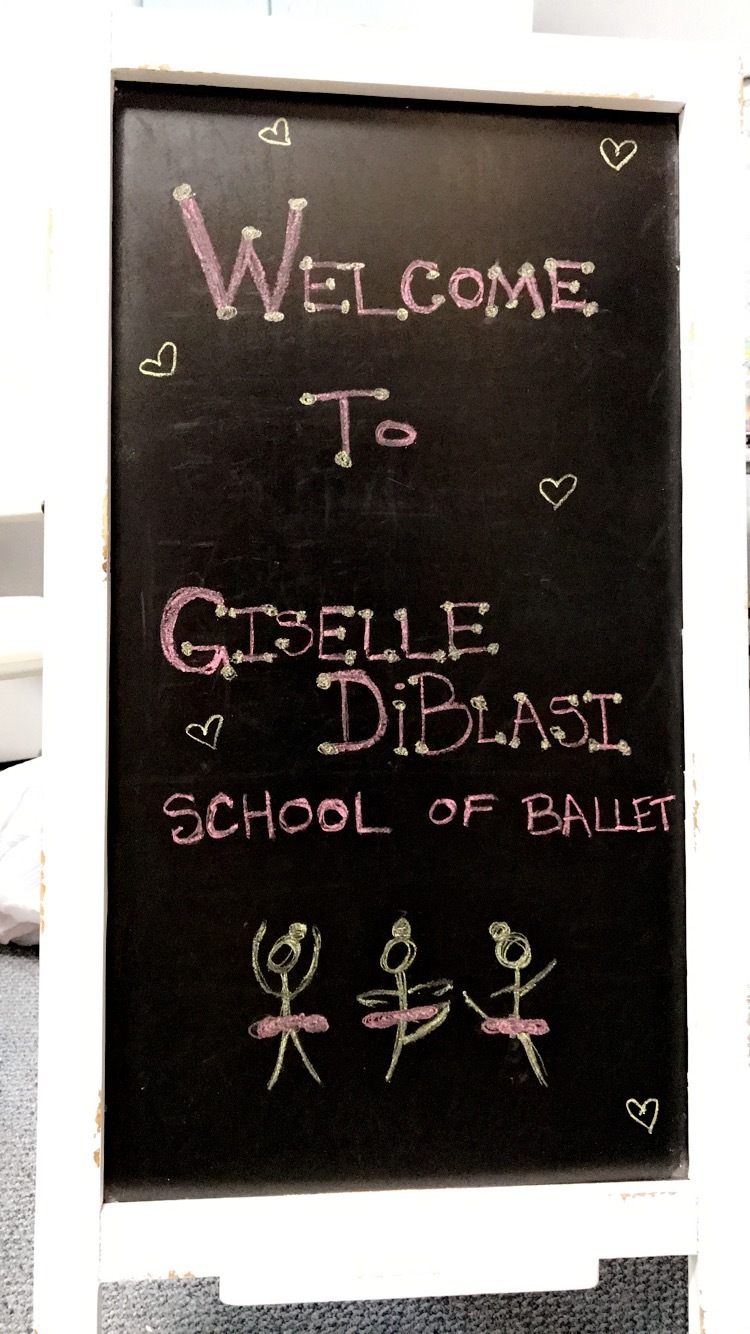 WELCOME
TO
GISELLE
DiBLASI
SCHOOL OF BALLET